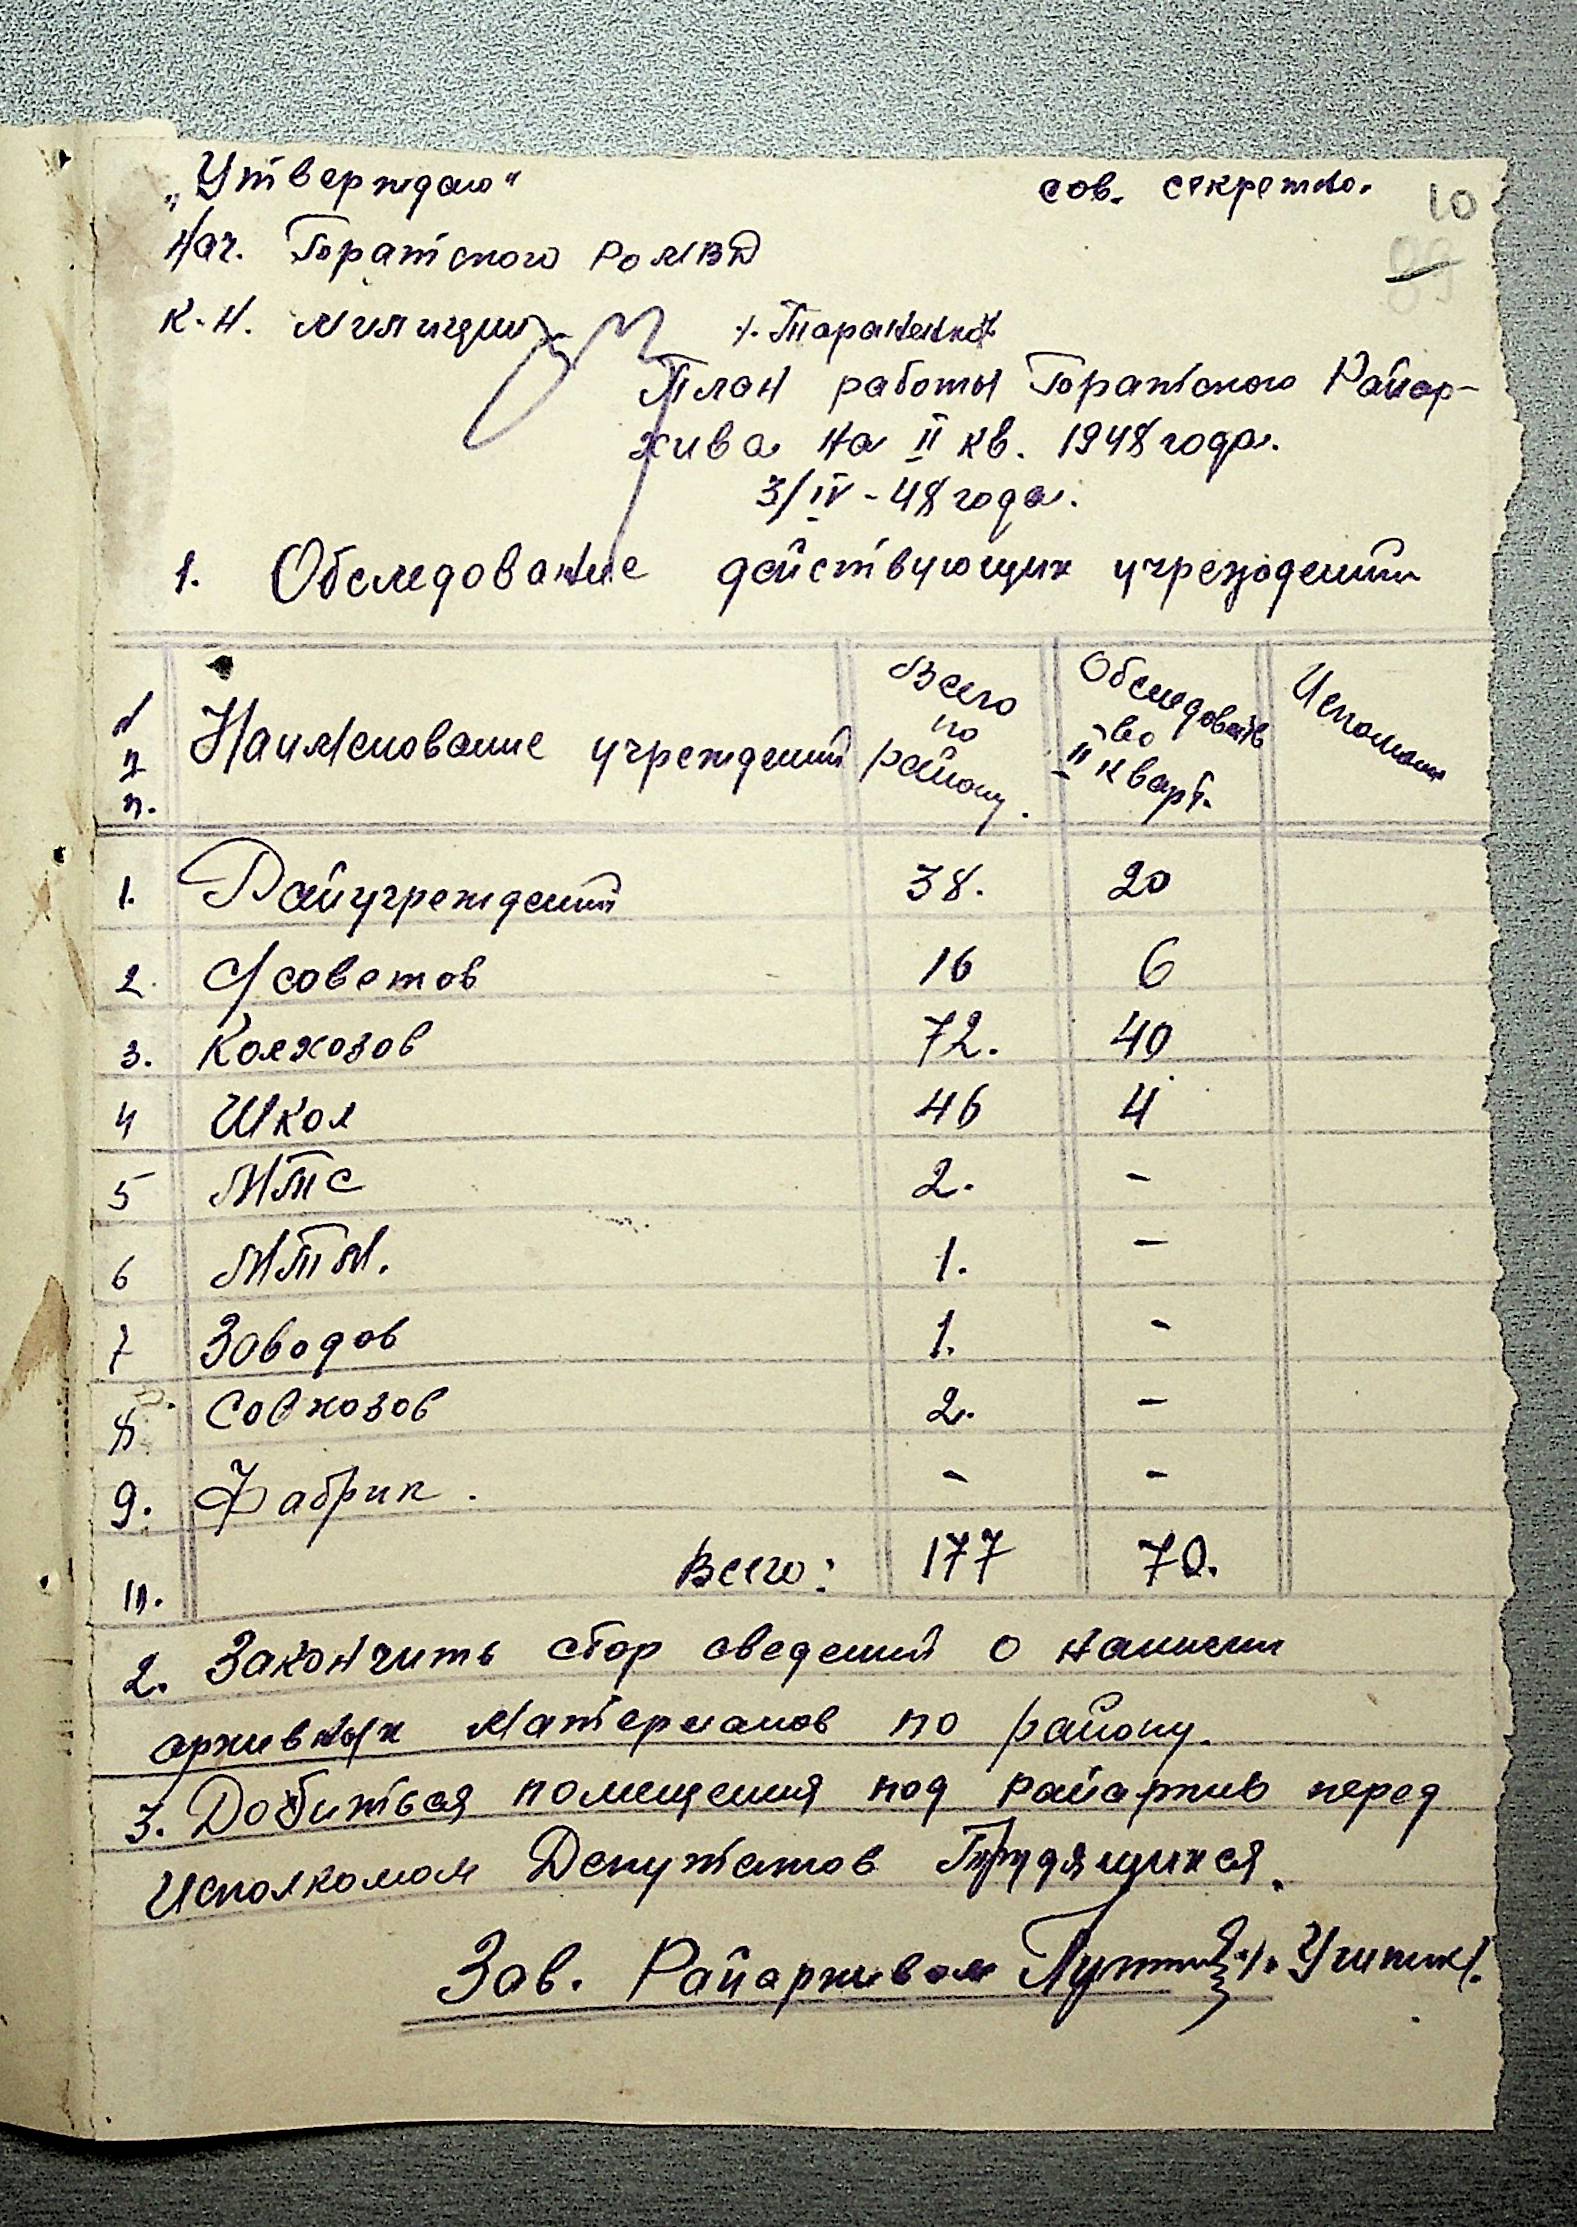 „Утверждаю“ сов. секретно. 10
Нач. Горатского РОМВД 89
К-н. милиции /. Тараненко/
План работы Горатского Райар-
хива на II кв. 1948 года.
3/IV - 48 года.
1. Обследование действующих учреждений
№ п п. Наименование учреждений Всего по району. Обследовать во II кварт. Исполнение
1. Райучреждений 38. 20
2. С/советов 16 6
3. Колхозов 72. 40
4 Школ 46 4
5 МТС 2. -
6 МТМ. 1. -
7 Заводов 1. -
8 Совхозов 2. -
9. Фабрик. - -
10. Всего: 177 70.
2. Закончить сбор сведений о наличии
архивных материалов по району.
3. Добиться помещения под райархив перед
Исполкомом Депутатов Трудящихся.
Зав. Райархивом